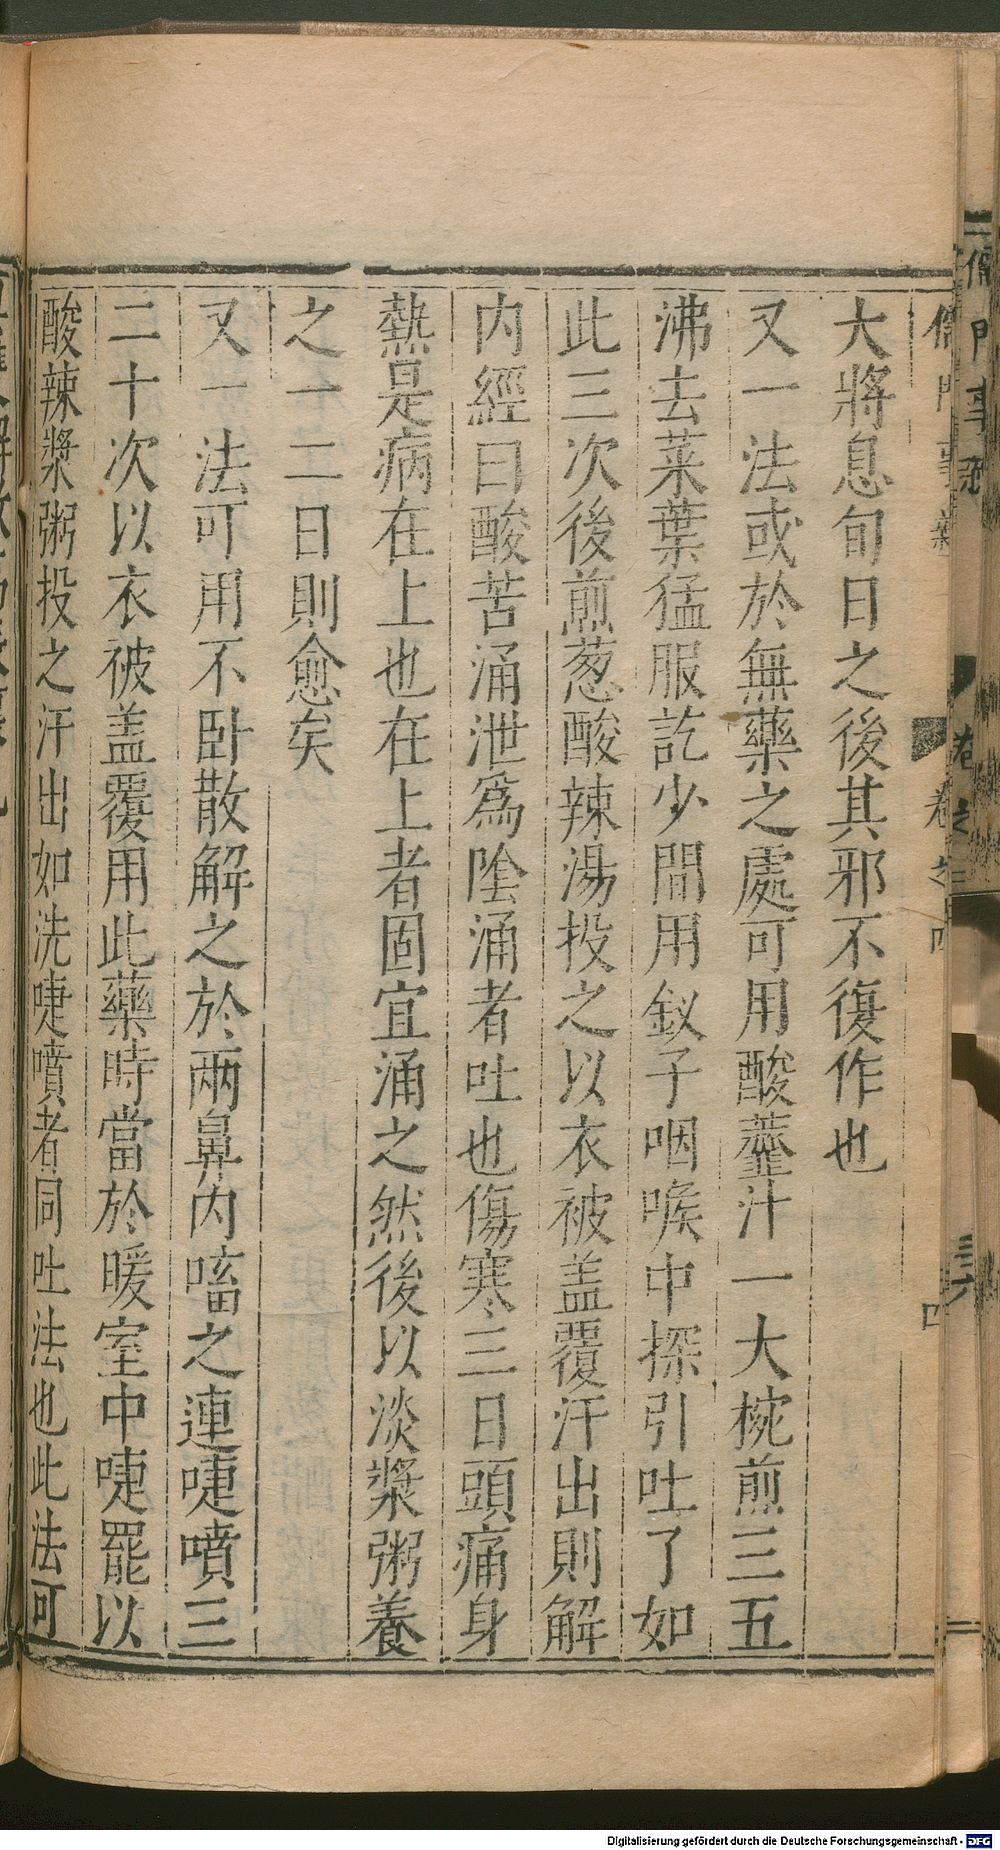 大將息旬日之後其邪不復作也
又一法或於無藥之處可用酸虀汁一大椀煎三五
沸去菜葉猛服訖少間用釵子咽喉中探引吐了如
此三次後煎葱酸辣湯投之以衣被盖覆汗出則解
内經曰酸苦涌泄爲陰涌者吐也傷寒三日頭痛身
熱是病在上也在上者固宜涌之然後以淡漿粥養
之一二日則愈矣
又一法可用不卧散解之於兩鼻内㗜之連嚏噴三
二十次以衣被盖覆用此藥時當於暖室中嚏罷以
酸辣漿粥投之汗出如洗嚏噴者同吐法也此法可
儒門事親 卷之四 四
儒門事 卷之二
Digitalisierung gefördert durch die Deutsche Forschungsgemeinschaft - DFG